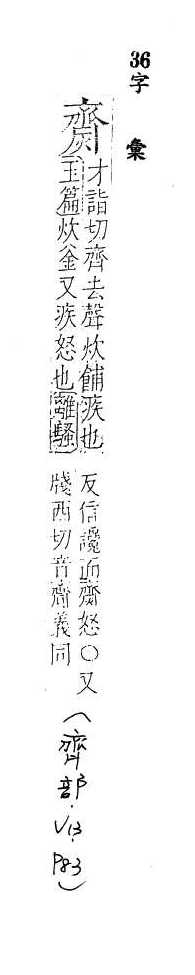 36字 彙
齌
才詣切齊去聲炊餔疾也
玉篇炊釜又疾怒也離騷
反信讒而齌怒○又
牋西切音齎義同
(齊部.V13.P83)